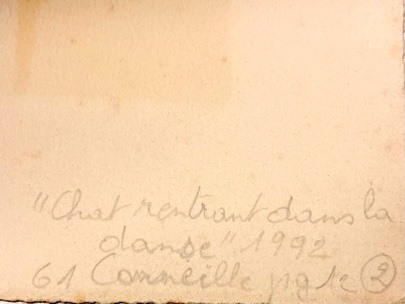 "Chat rentrant dans la
danse" 1992
61 Corneille pg 12 (2)